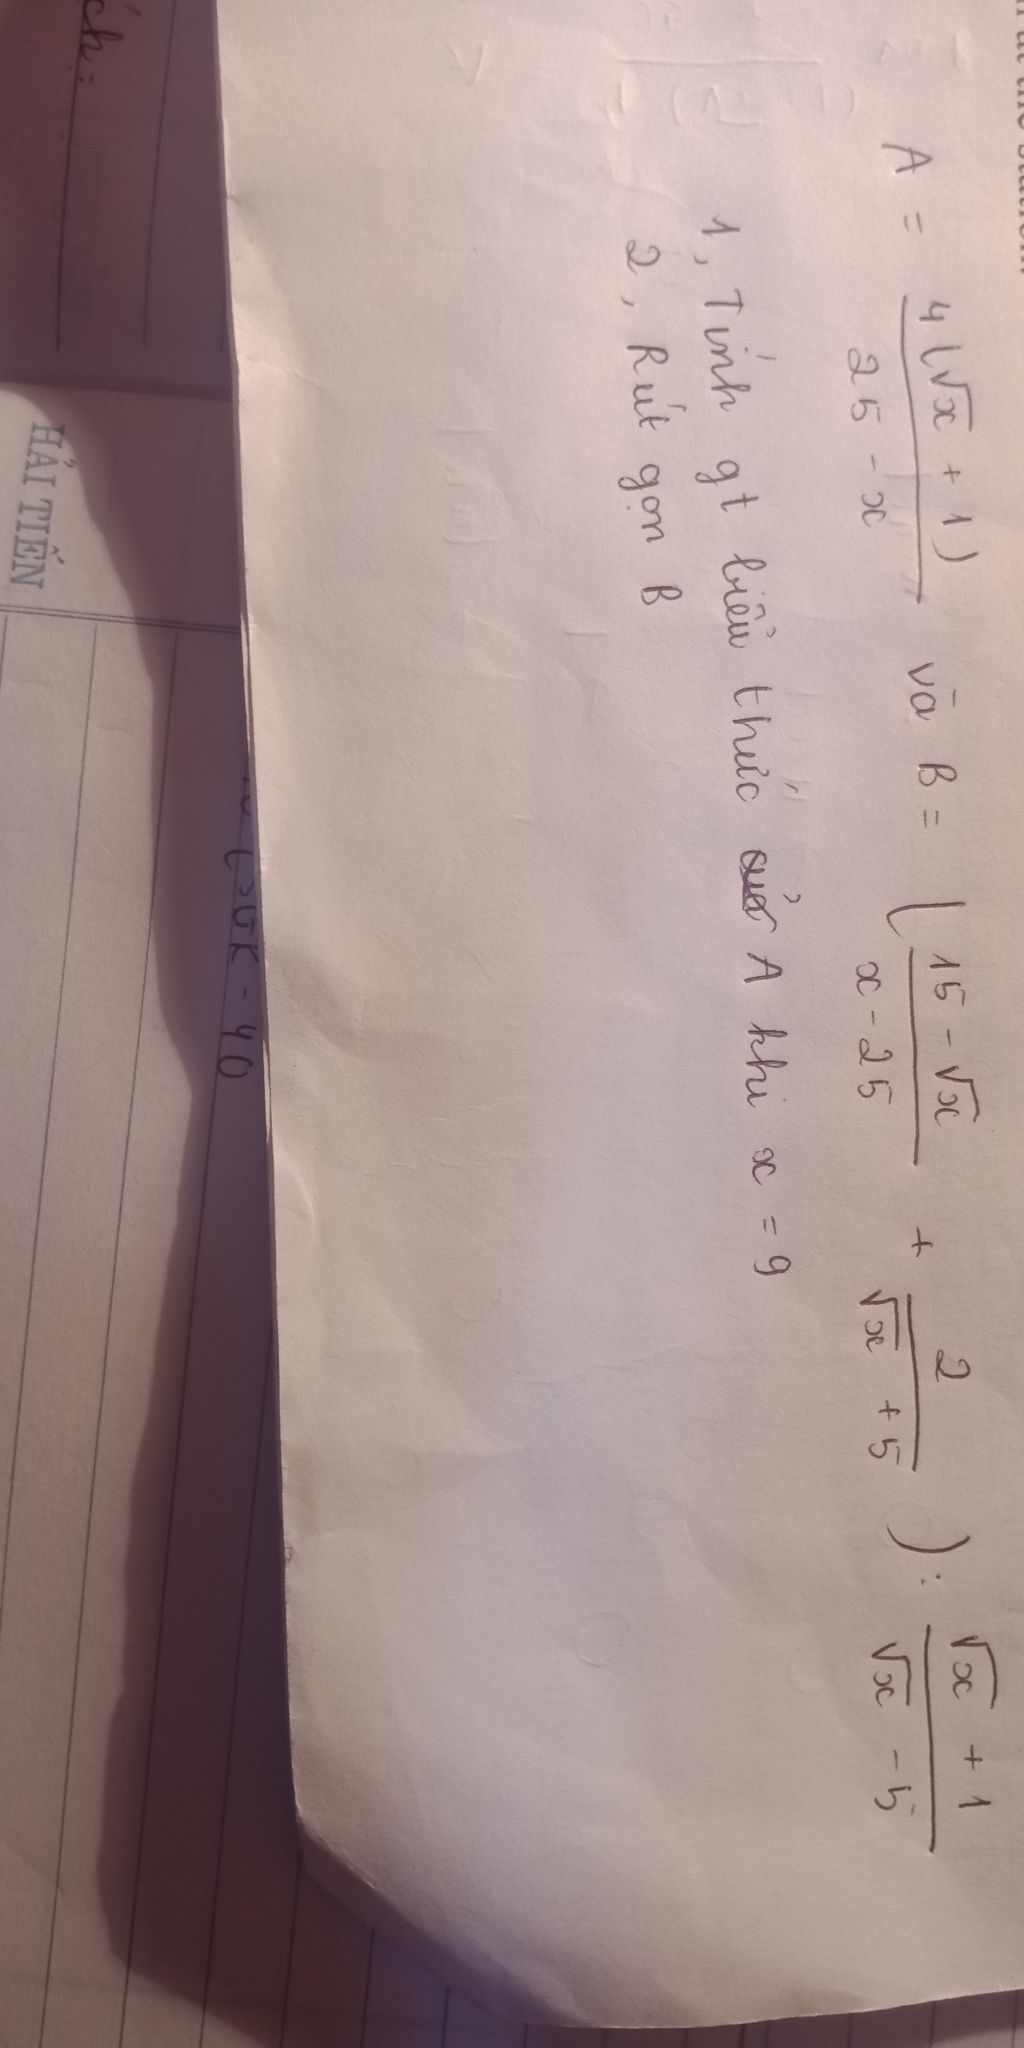 A = 4(√x + 1) / 25 - x và B = ( 15 - √x / x - 25 + 2 / √x + 5 ) : √x + 1 / √x - 5
1, Tính gt biểu thức A khi x = 9
2, Rút gọn B
HẢI TIẾN
- 40